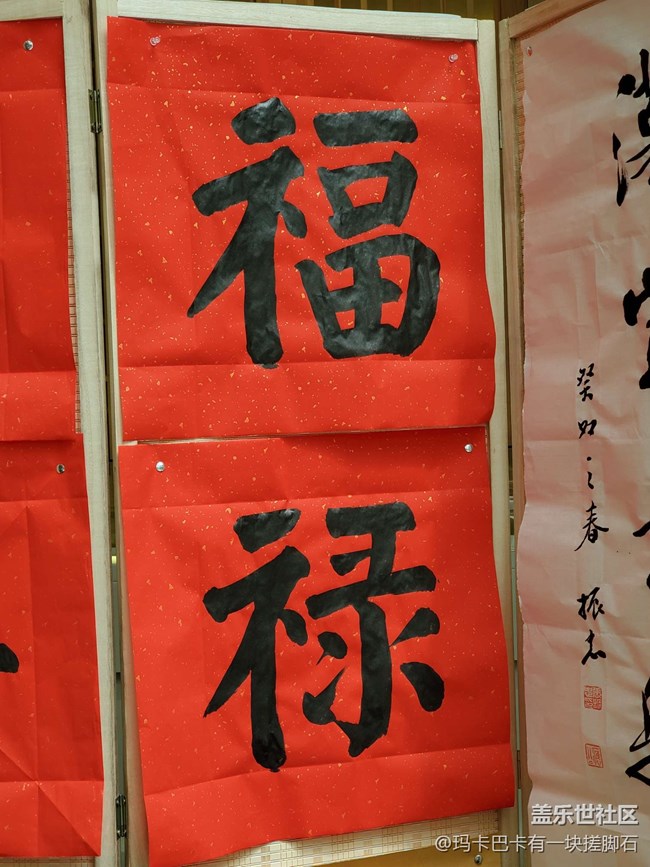 福
禄
癸卯之春
振志
盖乐世社区
@玛卡巴卡有一块搓脚石